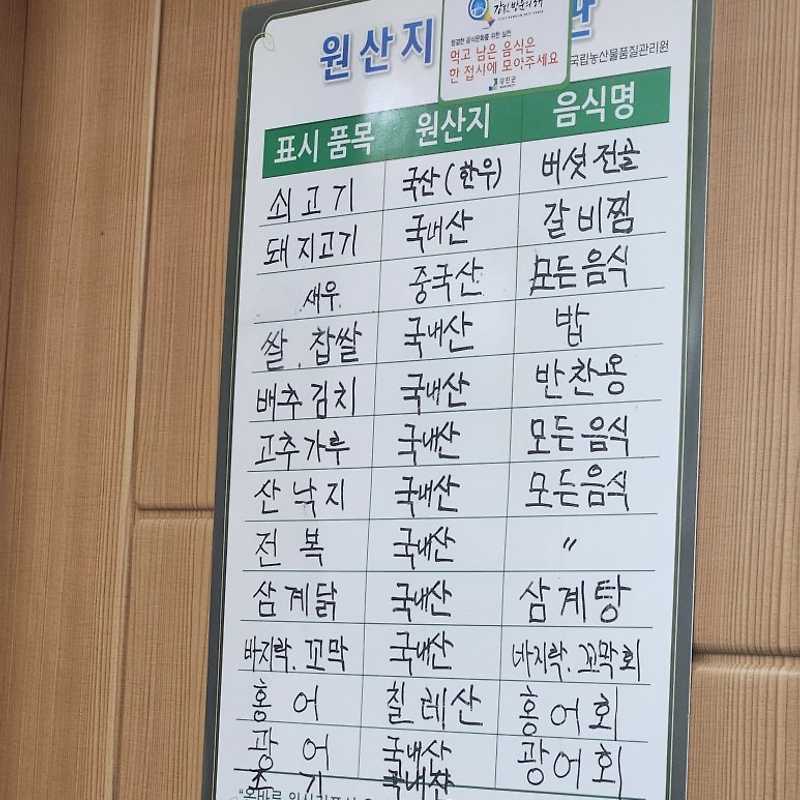 강진 방문의 해
먹고 남은 음식은
한 접시에 모아주세요
강진군
원산지 판
국립농산물품질관리원
표시 품목 원산지 음식명
쇠고기 국산(한우) 버섯전골
돼지고기 국내산 갈비찜
새우 중국산 모든음식
쌀.찹쌀 국내산 밥
배추김치 국내산 반찬용
고추가루 국내산 모든음식
산낙지 국내산 모든음식
전복 국내산 〃
삼계닭 국내산 삼계탕
바지락.꼬막 국내산 바지락.꼬막회
홍어 칠레산 홍어회
광어 국내산 광어회
조기 국내산